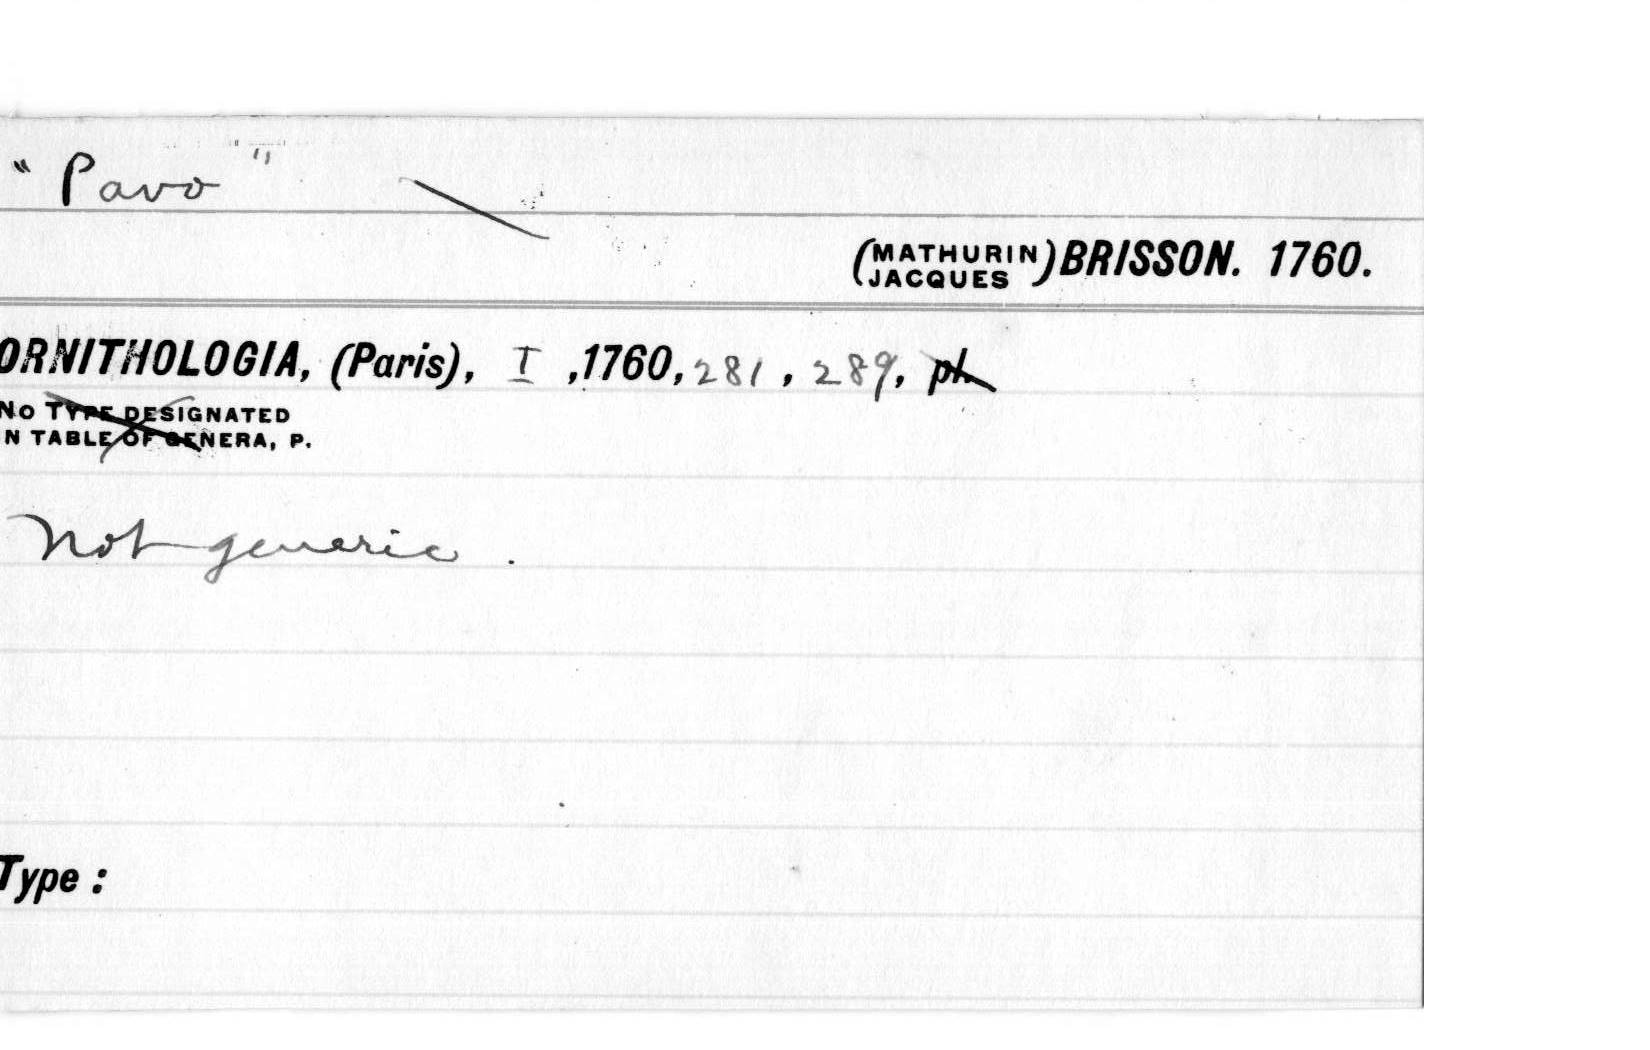 "Pavo"
(MATHURIN JACQUES) BRISSON. 1760.
ORNITHOLOGIA, (Paris), I ,1760, 281 , 289, pl.
NO TYPE DESIGNATED
N TABLE OF GENERA, P.
Not generic .
Type :